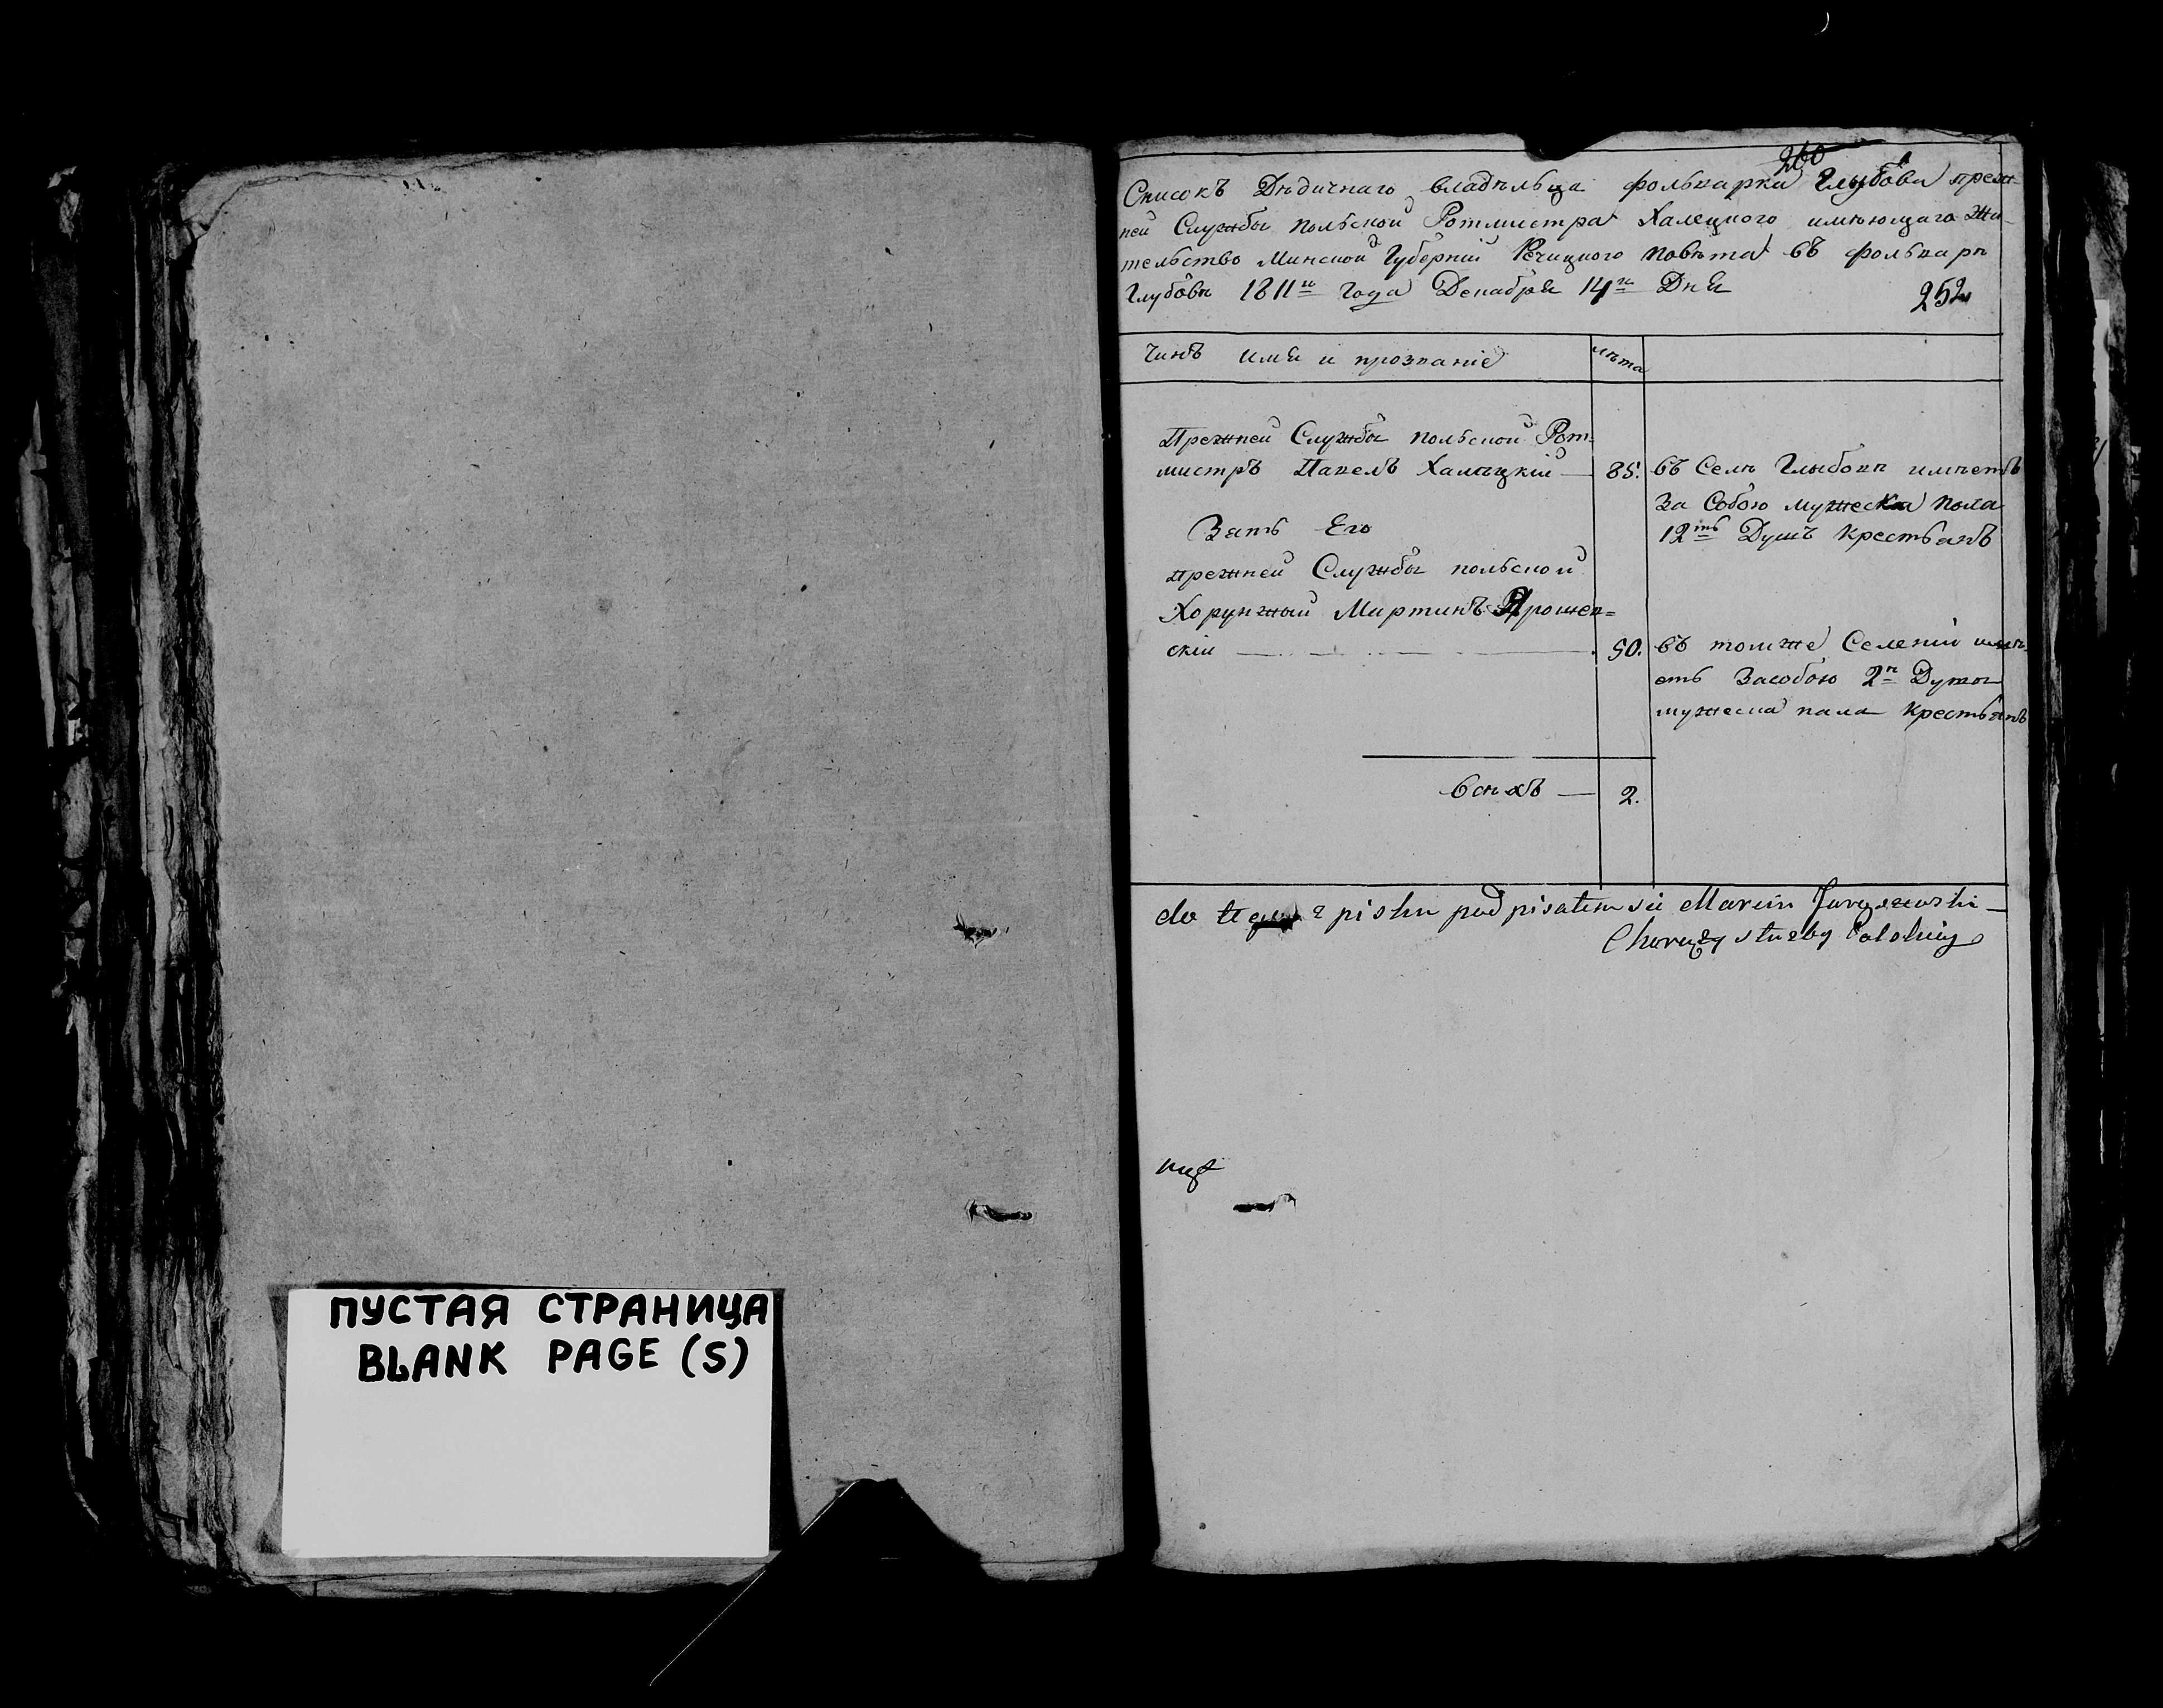 ПУСТАЯ СТРАНИЦА
BLANK PAGE (S)
260
Списокъ Дѣдичнаго владѣльца фольварка Глыбова преж-
ней Службы польской Ротмистра Халецкого имѣющаго Жи-
тельство Минской Губерніи Речицкого повѣта въ фольварк
Глубовѣ 1811го года Декабря 14го Дня
252
Чинъ имя и прозваніе
лѣта
Прежней Службы польской Рот-
мистръ Павелъ Халѣцкій — 85. въ Селѣ Глыбовѣ имѣетъ
За Собою мужеска пола
12ть Душъ крестьянъ
Зять Его
прежней Службы польской
Хорунжый Мартинъ Ярошев=
скій — 50. въ томже Селеніи имѣ-
етъ Засобою 2ѣ Души
мужеска пала крестьянъ
всѣхъ — 2.
do tego spisku podpisalem sie Marcin Jaroszewski
Chorąży służby Polskiey